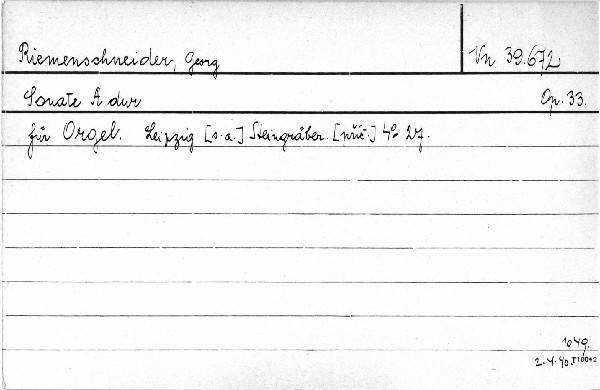 Riemenschneider, Georg
Vn 39.672
Sonate A dur
Op. 33.
für Orgel. Leipzig [s.a.] Steingräber. [příč.] 4° 27.
1049.
2.4.40.